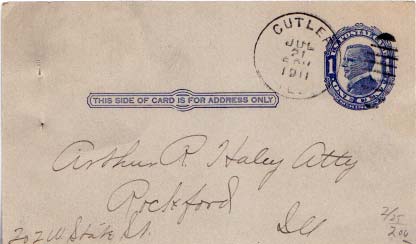 CUTLER
JUL
21
1911
U.S. POSTAL
1
ONE CENT
THIS SIDE OF CARD IS FOR ADDRESS ONLY
Arthur R. Haley Atty
Rockford
Ill
202 W State St.